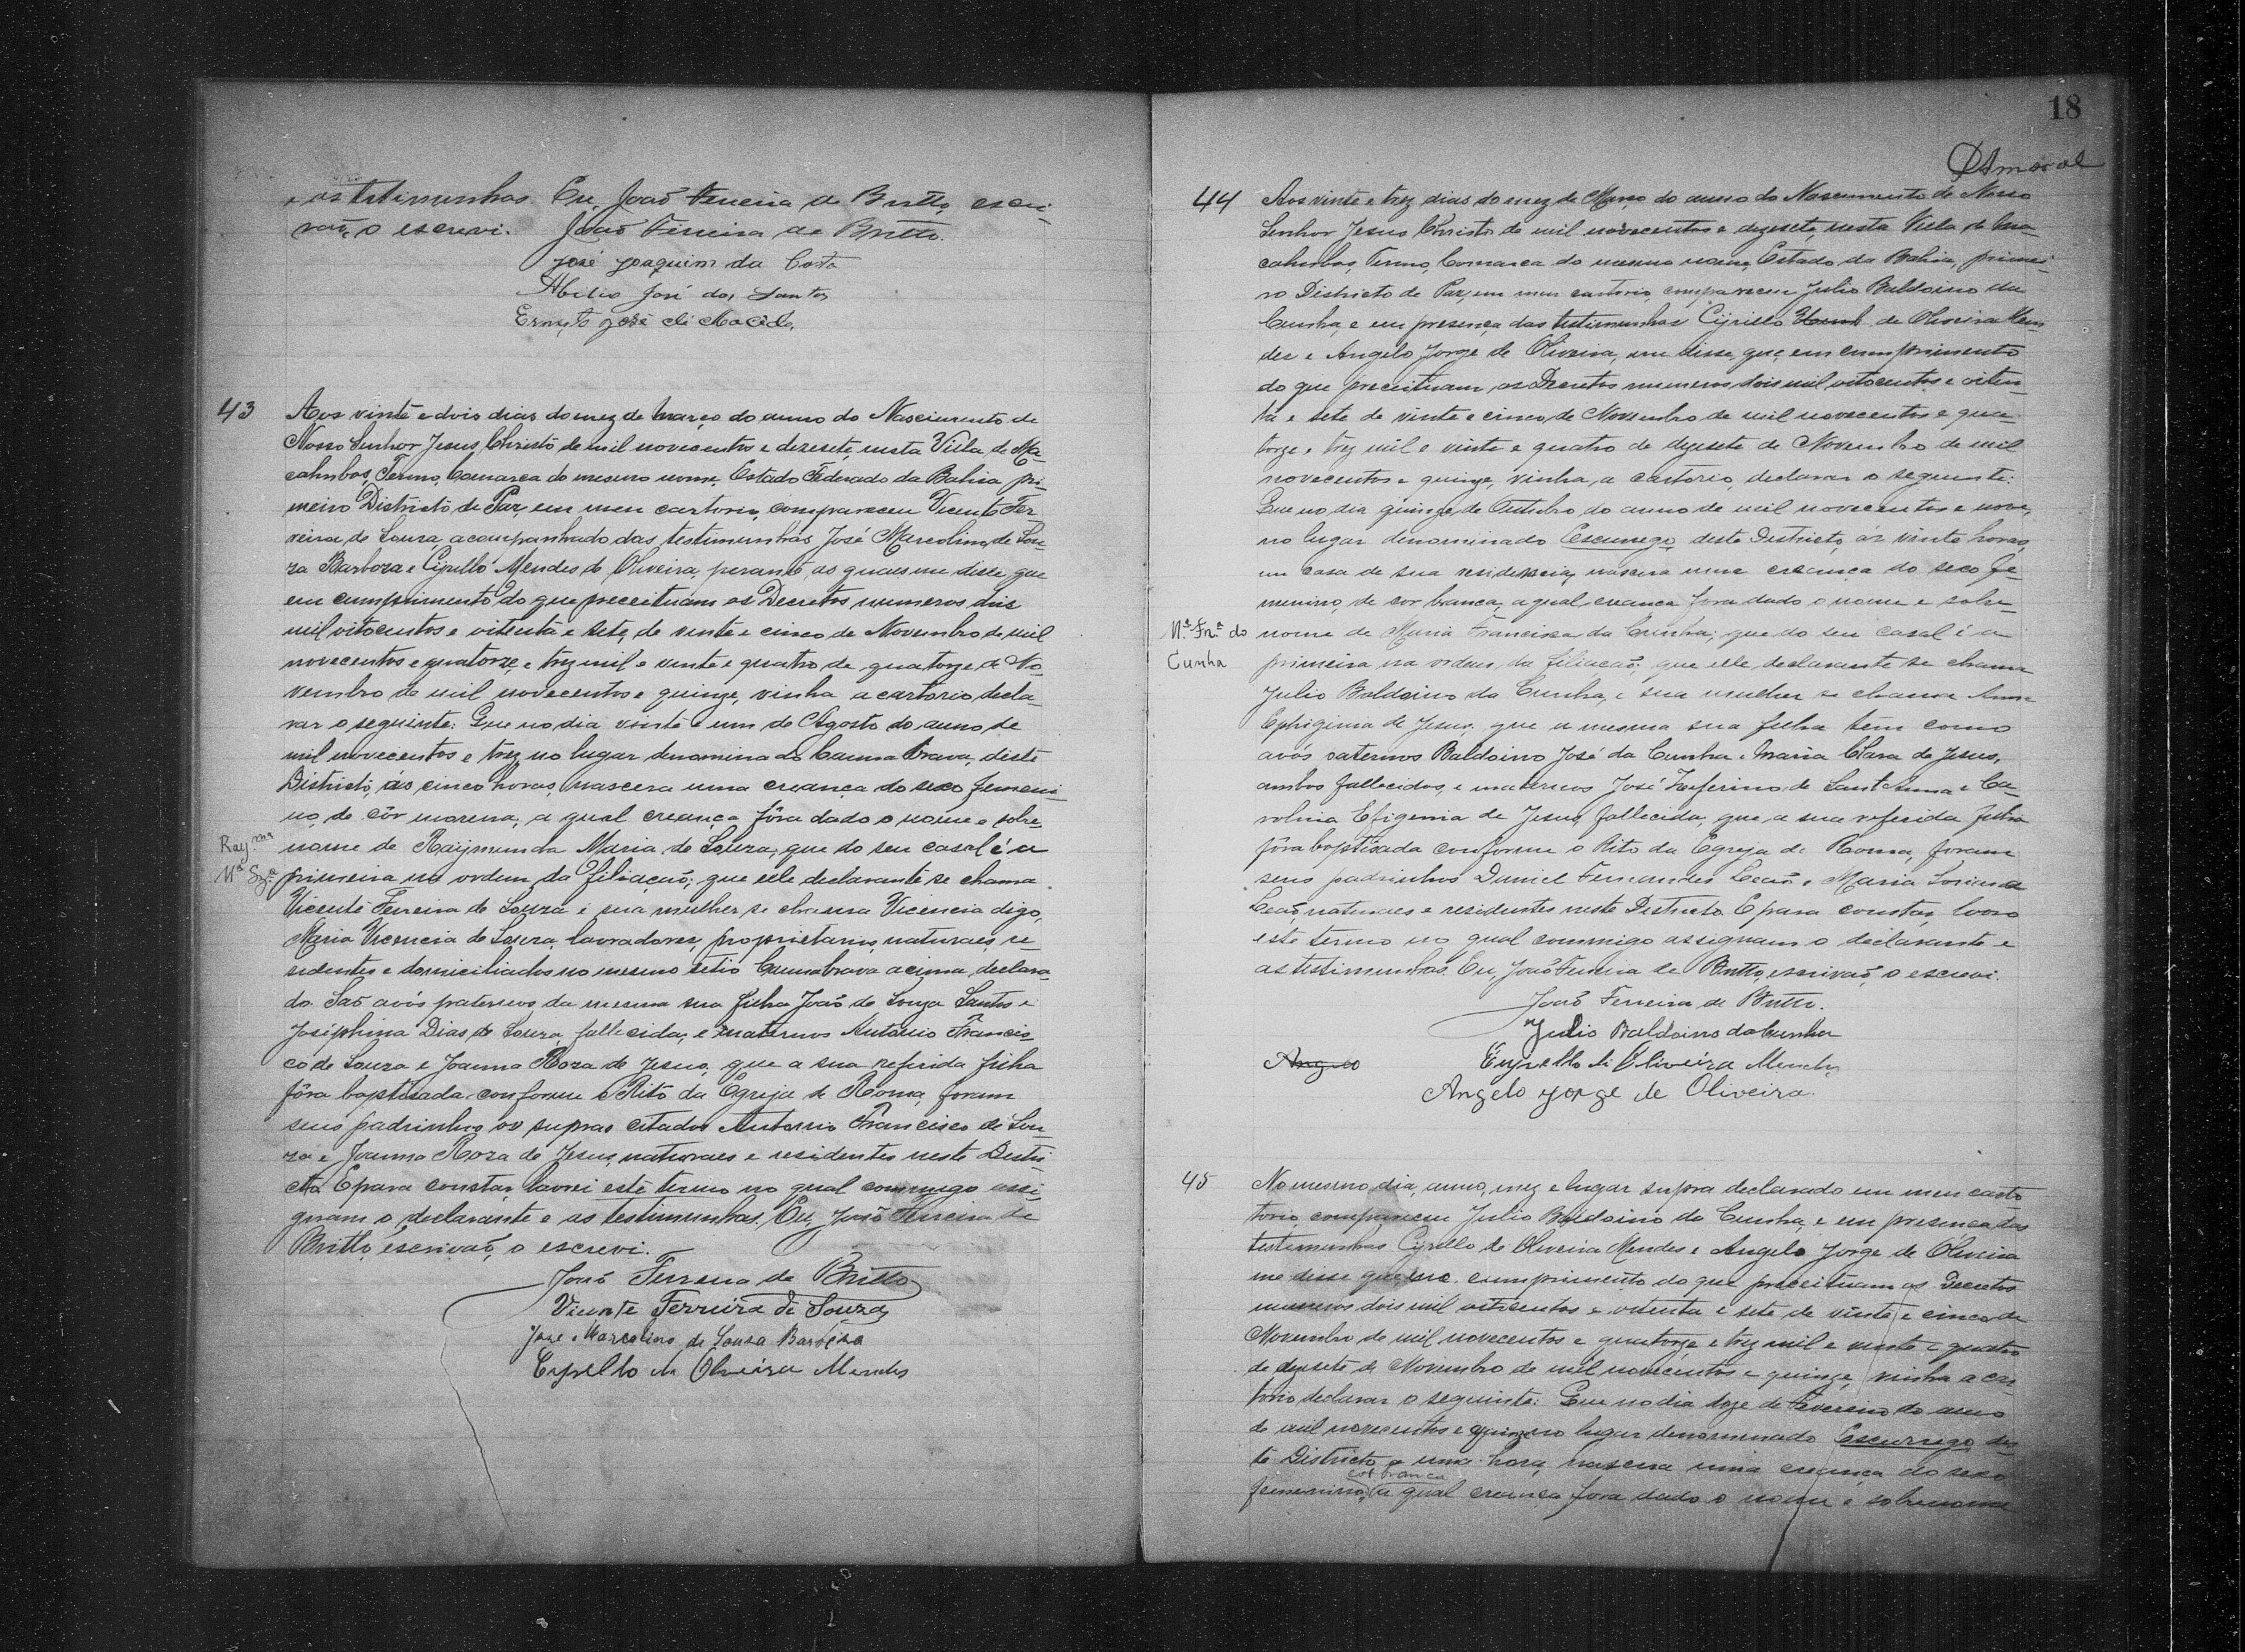 e as testimunhas. Eu, João Ferreira de Britto, escri-
vaõ, o escrevi. João Ferreira de Britto.
José Joaquim da Costa
Abilio José dos Santos
Ernesto José de Macêdo
43 Aos vinte e dois dias do mez de março do anno do Nascimento de
Nosso Senhor Jesus Christo de mil novecentos e dezesete, nesta Villa de Ma-
cahubas, Termo, Comarca do mesmo nome, Estado Federado da Bahia pri-
meiro Districto de Paz, em meu cartorio, compareceu Vicente Fer-
reira de Souza, acompanhado das testimunhas José Marcolino de Sou-
za Barboza e Cyrillo Mendes de Oliveira, perante as quaes me disse que
em cumprimento do que preceituam os Decretos numeros dois
mil oitocentos e oitenta e sete, de vinte e cinco de Novembro de mil
novecentos e quatorze, e trez mil e vinte e quatro de quatorze de No-
vembro de mil novecentos e quinze, vinha a cartorio decla-
rar o seguinte: Que no dia vinte e um de Agosto do anno de
mil novecentos e trez no lugar denominado Canna brava, deste
Districto, ás cinco horas, nascera uma creança do sexo femeni-
no, de côr morena, a qual creança fôra dado o nome e sobre-
Raym.da nome de Raymunda Maria de Souza; que do seu casal é a
Mª Sza primeira na ordem da filiação; que elle declarante se chama
Vicente Ferreira de Souza e sua mulher se chama Vicencia digo,
Maria Vicencia de Souza, lavradores, proprietarios, naturaes, re-
sidentes e domiciliados no mesmo sitio Cannabrava acima declara-
do. Saõ avós paternos da mesma sua filha João de Souza Santos e
Joséphina Dias de Souza, fallecida, e maternos Antonio Francis-
co de Souza e Joanna Roza de Jesus, que a sua referida filha
fôra baptisada conforme o Rito da Egreja de Roma, foram
seus padrinhos os supras citados Antonio Francisco de Sou-
za e Joanna Roza de Jesus, naturaes e residentes neste Distri-
cto. E para constar, lavrei este termo no qual commigo assi-
gnam o declarante e as testimunhas. Eu, João Ferreira de
Britto, escrivaõ, o escrevi.
João Ferreira de Britto
Vicente Ferreira de Souza
José Marcolino de Souza Barboza
Cyrillo de Oliveira Mendes
18
Amaral
44 Aos vinte e trez dias do mez de Março do anno do Nascimento de Nosso
Senhor Jesus Christo de mil novecentos e dezesete, nesta Villa de Ma-
cahubas, Termo, Comarca do mesmo nome, Estado da Bahia, primei-
ro Districto de Paz, em meu cartorio, compareceu Julio Baldoino da
Cunha, e em presença das testimunhas Cyrillo de Oliveira Men-
des e Angelo Jorge de Oliveira, me disse, que em cumprimento
do que preceituam os Decretos numeros dois mil oitocentos e oiten-
ta e sete de vinte e cinco de Novembro de mil novecentos e qua-
torze e trez mil e vinte e quatro de dezesete de Novembro de mil
novecentos e quinze, vinha, a cartorio, declarar o seguinte:
Que no dia quinze de Outubro do anno de mil novecentos e nove,
no lugar denominado Escurrego, deste Districto, ás vinte horas,
em casa de sua residencia, nascera uma creança do sexo fe-
menino, de cor branca, a qual creança fora dado o nome e sobre-
Mª Frª da nome de Maria Francisca da Cunha; que do seu casal é a
Cunha primeira na ordem da filiação; que elle, declarante se chama
Julio Baldoino da Cunha, e sua mulher se chama Anna
Ephigenia de Jesus; que a mesma sua filha tem como
avós paternos Baldoino José da Cunha e Maria Clara de Jesus,
ambos fallecidos, e maternos José Zeferino de Sant'Anna e Ca-
rolina Efigenia de Jesus, fallecida, que a sua referida filha
fôra baptisada conforme o Rito da Egreja de Roma, foram
seus padrinhos Daniel Fernandes Leaõ e Maria
Leaõ, naturaes e residentes neste Districto. E para constar, lavro
este termo no qual commigo assignam o declarante e
as testimunhas. Eu, João Ferreira de Britto, escrivaõ, o escrevi.
João Ferreira de Britto.
Julio Baldoino da Cunha
Angelo Cyrillo de Oliveira Mendes
Angelo Jorge de Oliveira.
45 No mesmo dia, anno, mez e lugar supra declarado em meu carto-
torio, compareceu Julio Baldoino da Cunha, e em presença das
testimunhas Cyrillo de Oliveira Mendes e Angelo Jorge de Oliveira
me disse que, em cumprimento do que preceituam os Decretos
numeros dois mil oitocentos e oitenta e sete de vinte e cinco de
Novembro de mil novecentos e quatorze e trez mil e vinte e quatro
de dezesete de Novembro de mil novecentos e quinze, vinha a car-
torio declarar o seguinte: Que no dia doze de Fevereiro do anno
de mil novecentos e quinze no lugar denominado Escurrego, des-
te Districto, a uma hora, nascera uma creança do sexo
cor branca
femenino, a qual creança fora dado o nome e sobrenome